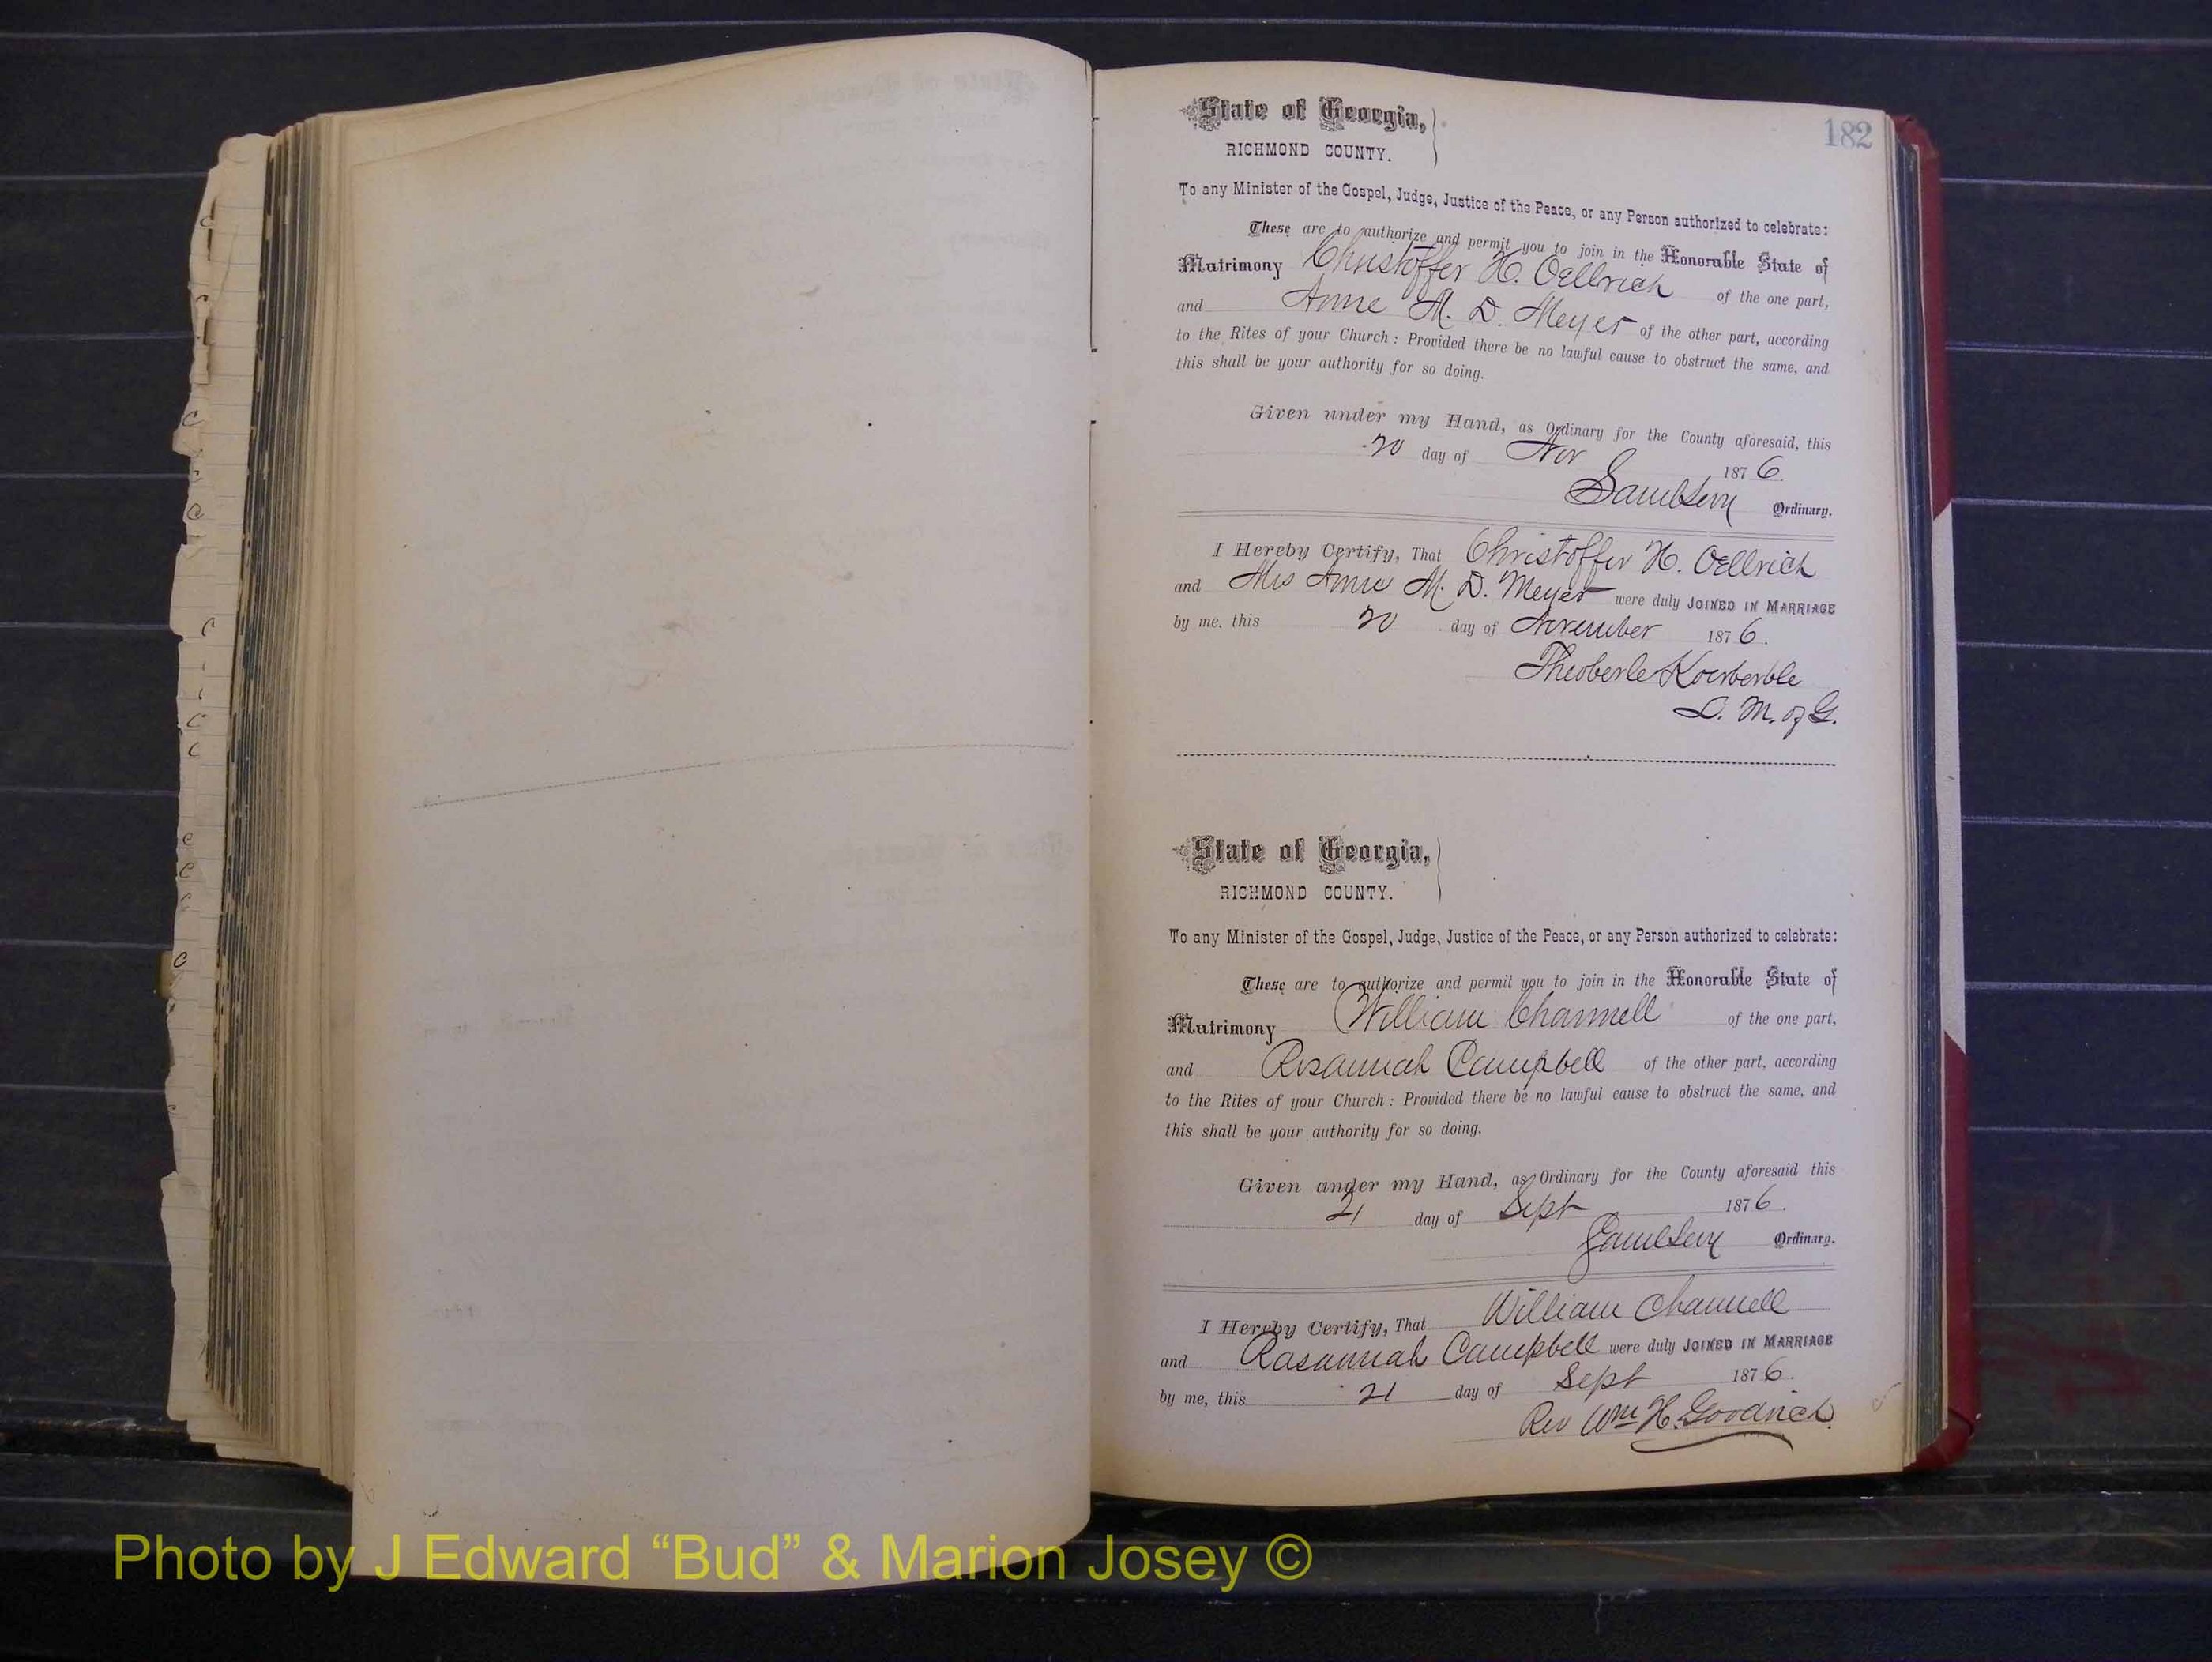 182
State of Georgia,
RICHMOND COUNTY.
To any Minister of the Gospel, Judge, Justice of the Peace, or any Person authorized to celebrate:
These are to authorize and permit you to join in the Honorable State of
Matrimony Christoffer H. Oellrich of the one part,
and Anne M. D. Meyer of the other part, according
to the Rites of your Church: Provided there be no lawful cause to obstruct the same, and
this shall be your authority for so doing.
Given under my Hand, as Ordinary for the County aforesaid, this
20 day of Nov 1876.
Saml Levy Ordinary.
I Hereby Certify, That Christoffer H. Oellrich
and Mis Anne M. D. Meyer were duly JOINED IN MARRIAGE
by me, this 20 day of November 1876.
Theoberle Koerberble
M. of G.
State of Georgia,
RICHMOND COUNTY.
To any Minister of the Gospel, Judge, Justice of the Peace, or any Person authorized to celebrate:
These are to authorize and permit you to join in the Honorable State of
Matrimony William Channell of the one part,
and Rosannah Campbell of the other part, according
to the Rites of your Church: Provided there be no lawful cause to obstruct the same, and
this shall be your authority for so doing.
Given under my Hand, as Ordinary for the County aforesaid this
21 day of Sept 1876.
Saml Levy Ordinary.
I Hereby Certify, That William Channell
and Rasannah Campbell were duly JOINED IN MARRIAGE
by me, this 21 day of Sept 1876.
Rev Wm H. Goodrich
Photo by J Edward “Bud” & Marion Josey ©